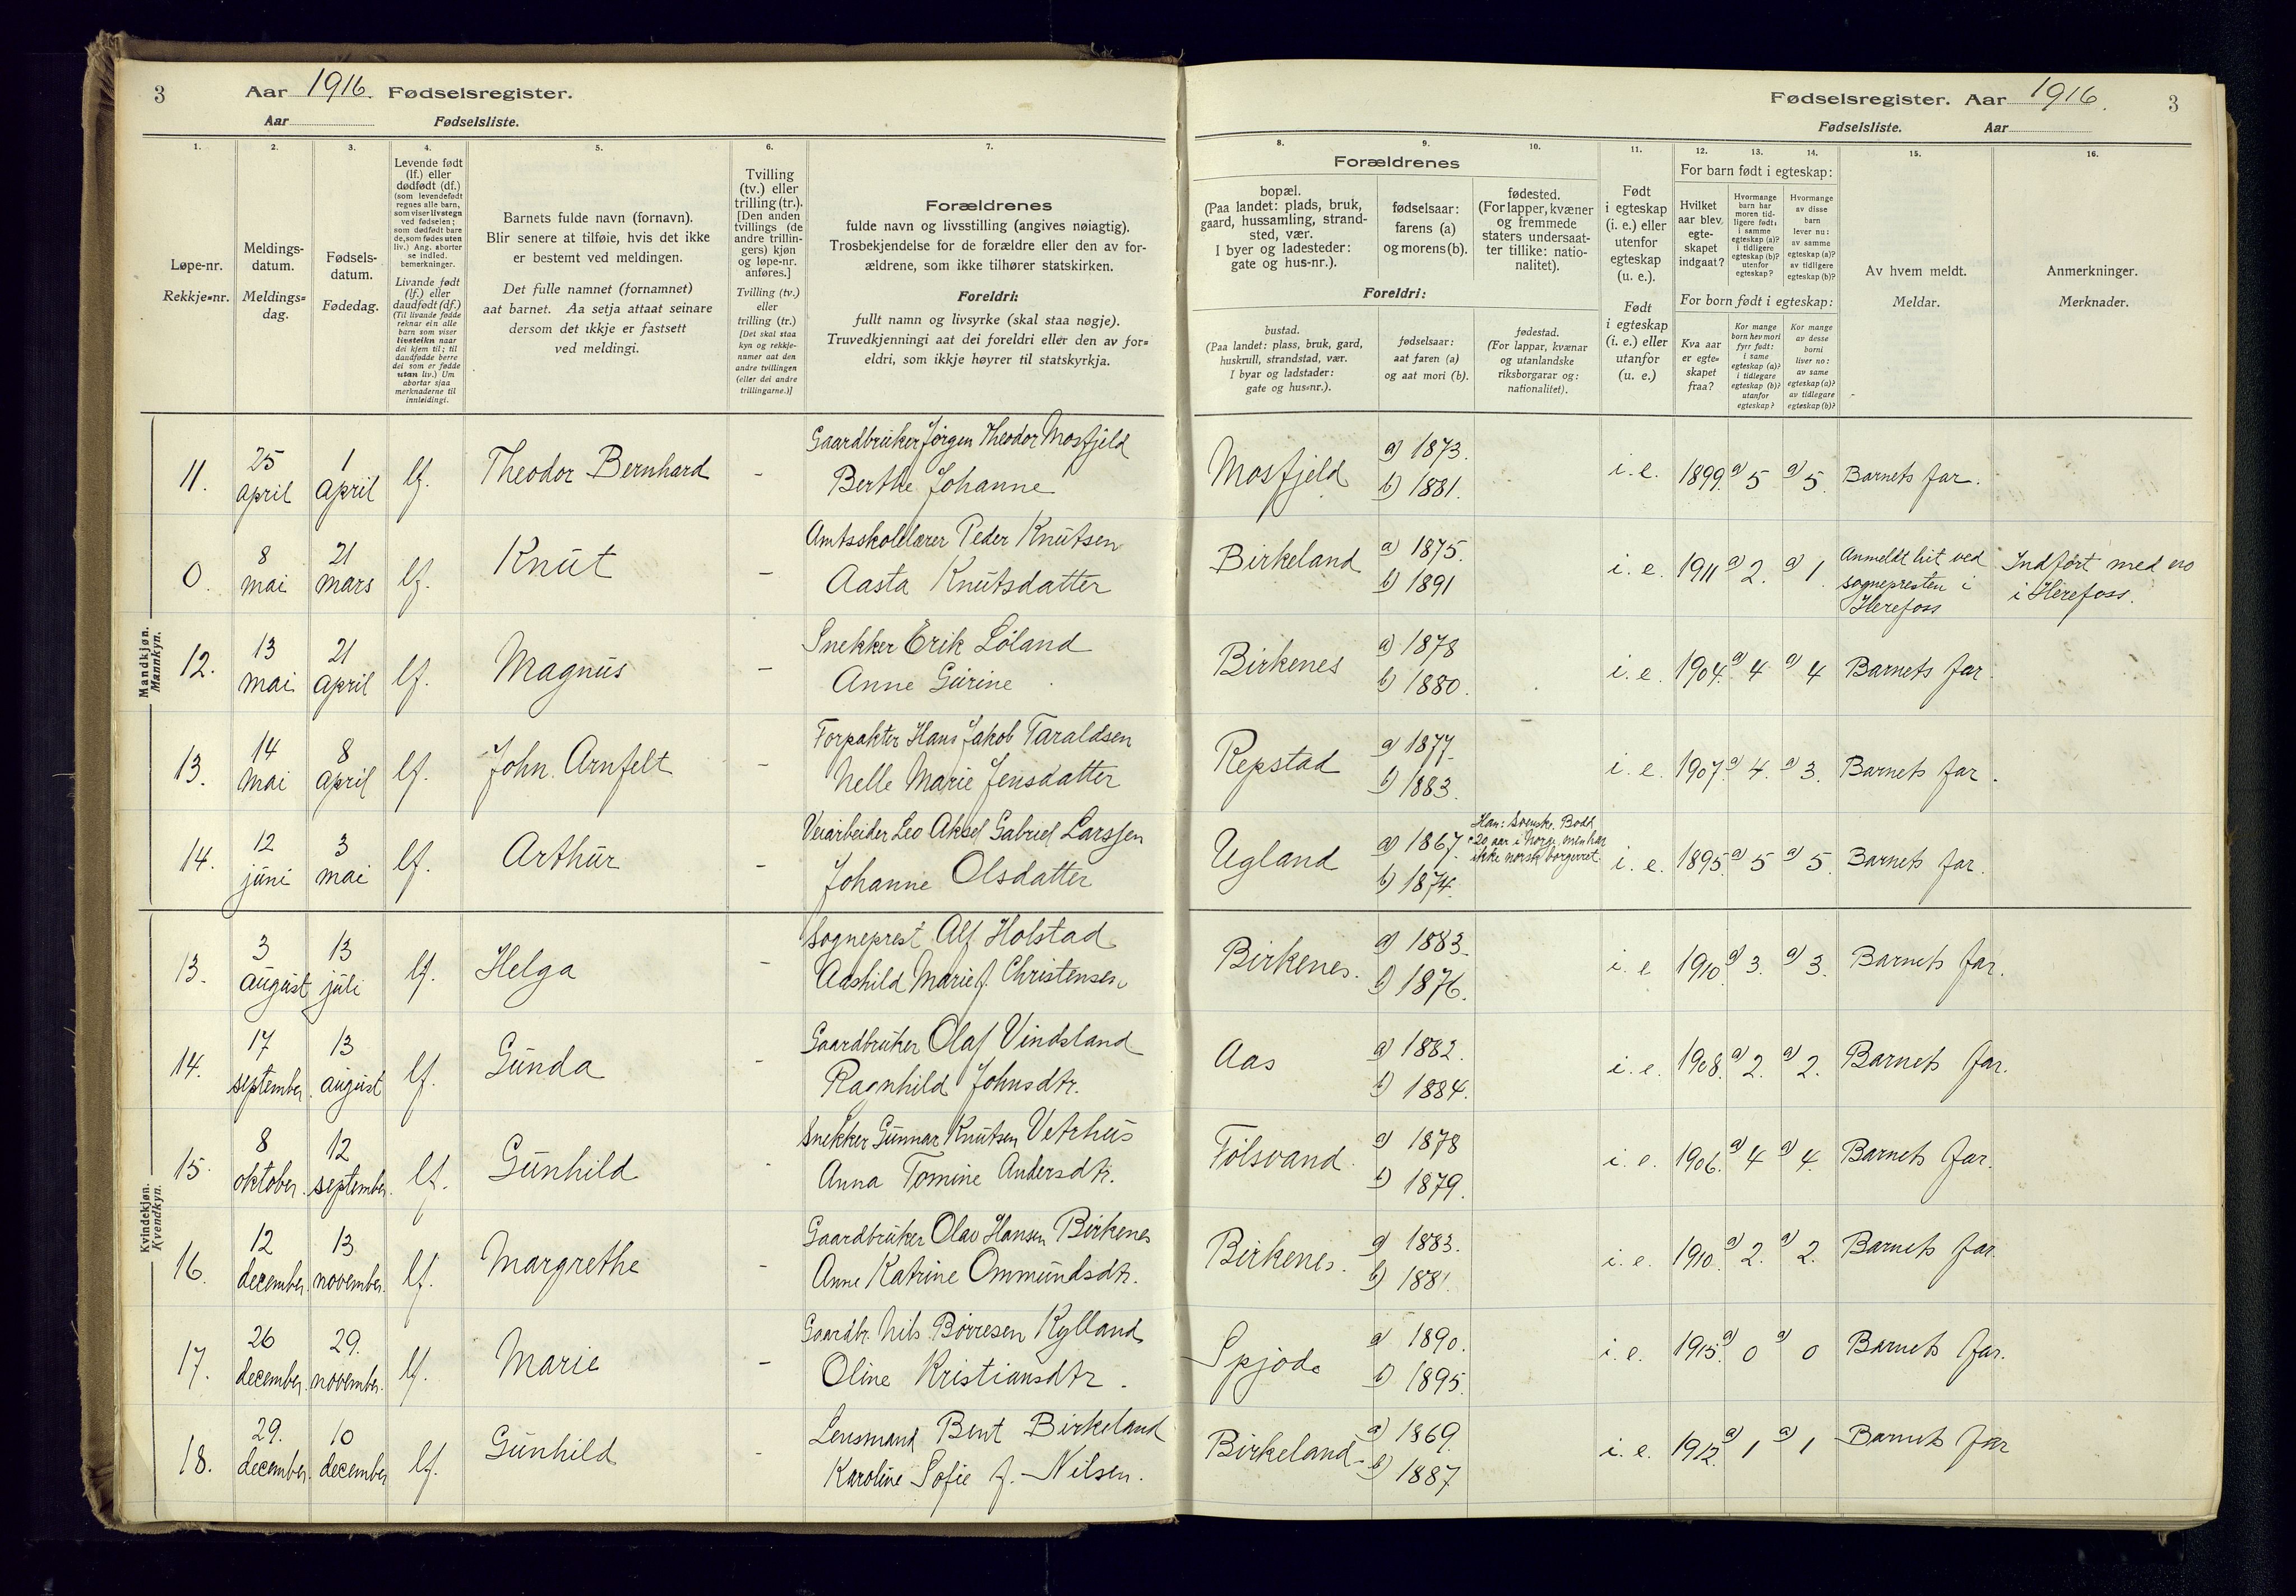 3 Aar 1916. Fødselsregister.
Aar Fødselsliste.
Fødselsregister. Aar 1916. 3
Fødselsliste. Aar
1. 2. 3. 4. 5. 6. 7.
Løpe-nr.
Rekkje-nr.
Meldings-
datum.
Meldings-
dag.
Fødsels-
datum.
Fødedag.
Levende født
(lf.) eller
dødfødt (df.)
(som levendefødt
regnes alle barn,
som viser livstegn
ved fødselen;
som dødfødt bare
de, som fødes uten
liv.) Ang. aborter
se indled.
bemerkninger.
Livande født
(lf.) eller
daudfødt (df.)
(Til livande fødde
reknar ein alle
barn som viser
livsteikn naar
dei kjem til; til
daudfødde berre
dei som er fødde
utan liv.) Um
abortar sjaa
merknaderne til
innleidingi.
Barnets fulde navn (fornavn).
Blir senere at tilføie, hvis det ikke
er bestemt ved meldingen.
Det fulle namnet (fornamnet)
aat barnet. Aa setja attaat seinare
dersom det ikkje er fastsett
ved meldingi.
Tvilling
(tv.) eller
trilling (tr.).
[Den anden
tvillings (de
andre trillin-
gers) kjøn
og løpe-nr.
anføres.]
Tvilling (tv.)
eller
trilling (tr.)
[Det skal staa
kyn og rekkje-
numer aat den
andre tvillingen
(eller dei andre
trillingarne.)]
Forældrenes
fulde navn og livsstilling (angives nøiagtig).
Trosbekjendelse for de forældre eller den av for-
ældrene, som ikke tilhører statskirken.
Foreldri:
fullt namn og livsyrke (skal staa nøgje).
Truvedkjenningi aat dei foreldri eller den av for-
eldri, som ikkje høyrer til statskyrkja.
8. 9. 10. 11. 12. 13. 14. 15. 16.
Forældrenes
bopæl.
(Paa landet: plads, bruk,
gaard, hussamling, strand-
sted, vær.
I byer og ladesteder:
gate og hus-nr.).
fødselsaar:
farens (a)
og morens (b).
fødested.
(For lapper, kvæner
og fremmede
staters undersaat-
ter tillike: natio-
nalitet).
Foreldri:
bustad.
(Paa landet: plass, bruk, gard,
huskrull, strandstad, vær.
I byar og ladstader:
gate og hus-nr.).
fødselsaar:
aat faren (a)
og aat mori (b).
fødestad.
(For lappar, kvænar
og utanlandske
riksborgarar og:
nationalitet).
Født
i egteskap
(i. e.) eller
utenfor
egteskap
(u. e.).
Født
i egteskap
(i. e.) eller
utanfor
(u. e.)
For barn født i egteskap:
Hvilket
aar blev
egte-
skapet
indgaat?
Hvormange
barn har
moren tid-
ligere født:
i samme
egteskap (a)?
i tidligere
egteskap (b)?
utenfor
egteskap?
Hvormange
av disse
barn
lever nu:
av samme
egteskap (a)?
av tidligere
egteskap (b)?
For born født i egteskap:
Kva aar
er egte-
skapet
fraa?
Kor mange
born hev mori
fyrr født:
i same
egteskap (a)?
i tidlegare
egteskap (b)?
utanfor
egteskap?
Kor mange
av desse
borni
liver no:
av same
egteskap (a)?
av tidlegare
egteskap (b)?
Av hvem meldt.
Meldar.
Anmerkninger.
Merknader.
Mandkjøn.
Mannkyn.
11. 25 april 1 april lf. Theodor Bernhard - Gaardbruker Jørgen Theodor Mosfjeld
Berthe Johanne
Mosfjeld a) 1873. b) 1881. i. e. 1899. a) 5 a) 5. Barnets far.
0. 8 mai 21 mars lf. Knut - Amtsskolelærer Peder Knutsen
Aasta Knutsdatter
Birkeland a) 1875. b) 1891 i. e. 1911 a) 2. a) 1. Anmeldt hit ved
sognepresten i
Herefoss
Indført med no
i Herefoss.
12. 13 mai 21 april lf. Magnus - Snekker Erik Løland
Anne Gurine
Birkenes a) 1878 b) 1880. i. e. 1904. a) 4 a) 4 Barnets far.
13. 14 mai 8 april lf. John Arnfelt - Forpakter Hans Jakob Taraldsen
Nelle Marie Jensdatter
Repstad a) 1877. b) 1883. i. e. 1907. a) 4. a) 3. Barnets far.
14. 12 juni 3 mai lf. Arthur - Veiarbeider Leo Aksel Gabriel Larssen
Johanne Olsdatter
Ugland a) 1867. b) 1874. Han: Svenske. Bodd
20 aar i Norge, men har
ikke norsk borgerret.
i. e. 1895. a) 5 a) 5. Barnets far.
Kvindekjøn.
Kvendkyn.
13. 3 august 13 juli lf. Helga - Sogneprest Alf Holstad
Aashild Marie f. Christensen
Birkenes. a) 1883. b) 1876. i. e. 1910. a) 3. a) 3. Barnets far.
14. 17 september. 13 august lf. Gunda - Gaardbruker Olaf Vindsland
Ragnhild Johnsdtr.
Aas a) 1882. b) 1884. i. e. 1908. a) 2. a) 2. Barnets far.
15. 8 oktober. 12 september. lf. Gunhild - Snekker Gunnar Knutsen Vetrhus
Anna Tomine Andersdtr.
Følsvand. a) 1878 b) 1879. i. e. 1906. a) 4 a) 4. Barnets far.
16. 12 december. 13 november. lf. Margrethe - Gaardbruker Olav Hansen Birkenes
Anne Katrine Ommundsdtr.
Birkenes. a) 1883. b) 1881. i. e. 1910. a) 2. a) 2. Barnets far.
17. 26 december. 29. november. lf. Marie - Gaardbr. Nils Børresen Kylland
Oline Kristiansdtr.
a) 1890. b) 1895. i. e. 1915. a) 0 a) 0 Barnets far.
18. 29. december. 10 december lf. Gunhild - Lensmand Bent Birkeland
Karoline Sofie f. Nilsen.
Birkeland- a) 1869. b) 1887 i. e. 1912. a) 1 a) 1 Barnets far